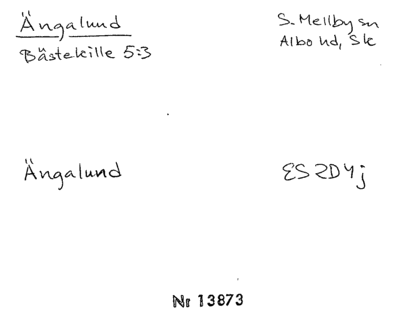 Ängalund
S. Mellby sn
Bästekille 5:3
Albo hd, Sk
Ängalund
ES 2D4j
Nr 13873